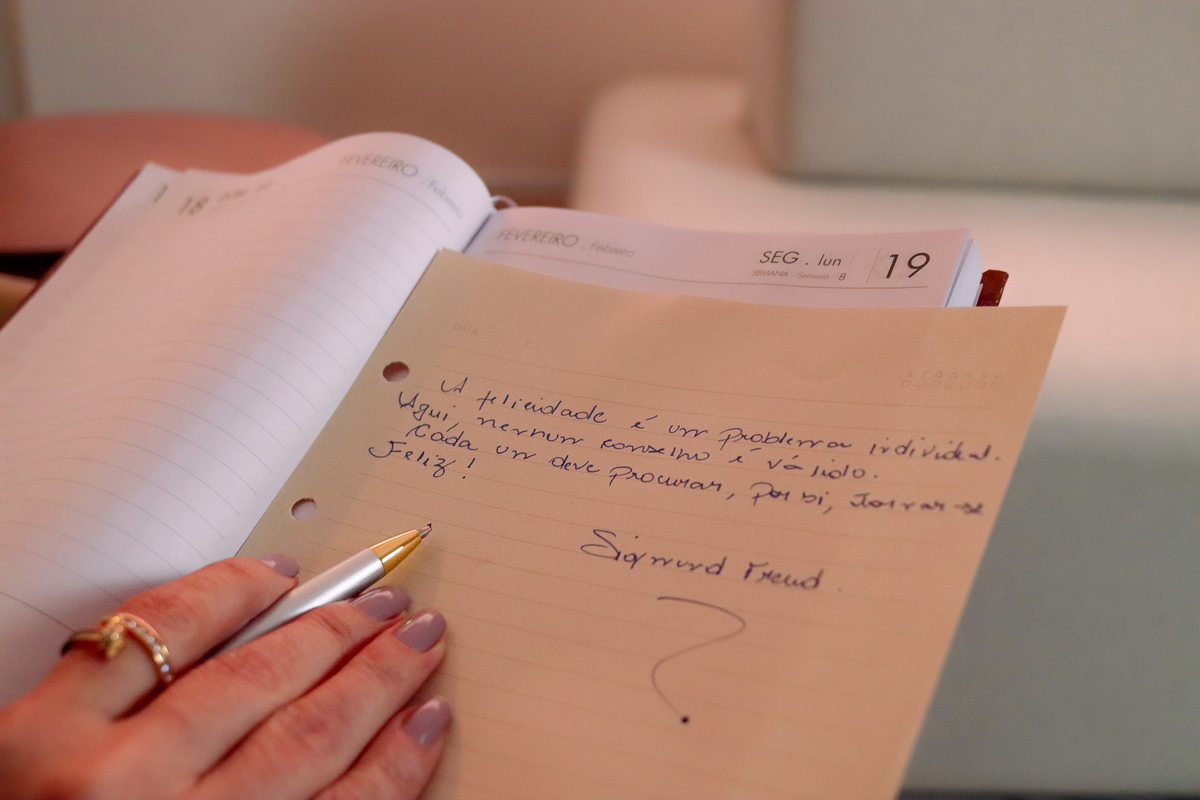 FEVEREIRO . Febrero
18
FEVEREIRO . Febrero
SEG . lun 19
SEMANA . Semana 8
DATA
A felicidade é um problema individual.
Aqui, nenhum conselho é válido.
Cada um deve procurar, por si, tornar-se
Feliz!
Sigmund Freud.
?